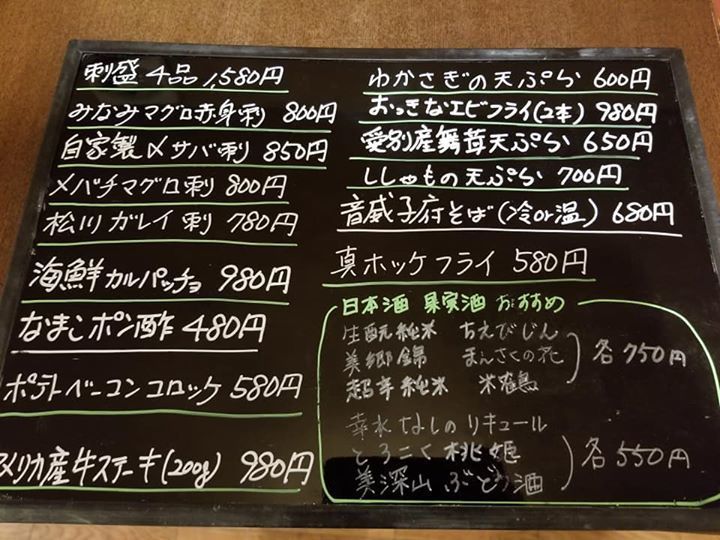 刺盛 4品 1,580円
みなみマグロ赤身刺 800円
自家製〆サバ刺 850円
メバチマグロ刺 800円
松川ガレイ刺 780円
海鮮カルパッチョ 980円
なまこポン酢 480円
ポテトベーコンコロッケ 580円
アメリカ産牛ステーキ(200g) 980円
わかさぎの天ぷら 600円
おっきなエビフライ(2本) 980円
愛別産舞茸天ぷら 650円
ししゃもの天ぷら 700円
音威子府そば(冷or温) 680円
真ホッケフライ 580円
日本酒 果実酒 おすすめ
生酛純米 ちえびじん
美郷錦 まんさくの花
超辛純米 米鶴
各750円
幸水なしのリキュール
とろこく桃姫
美深山ぶどう酒
各550円